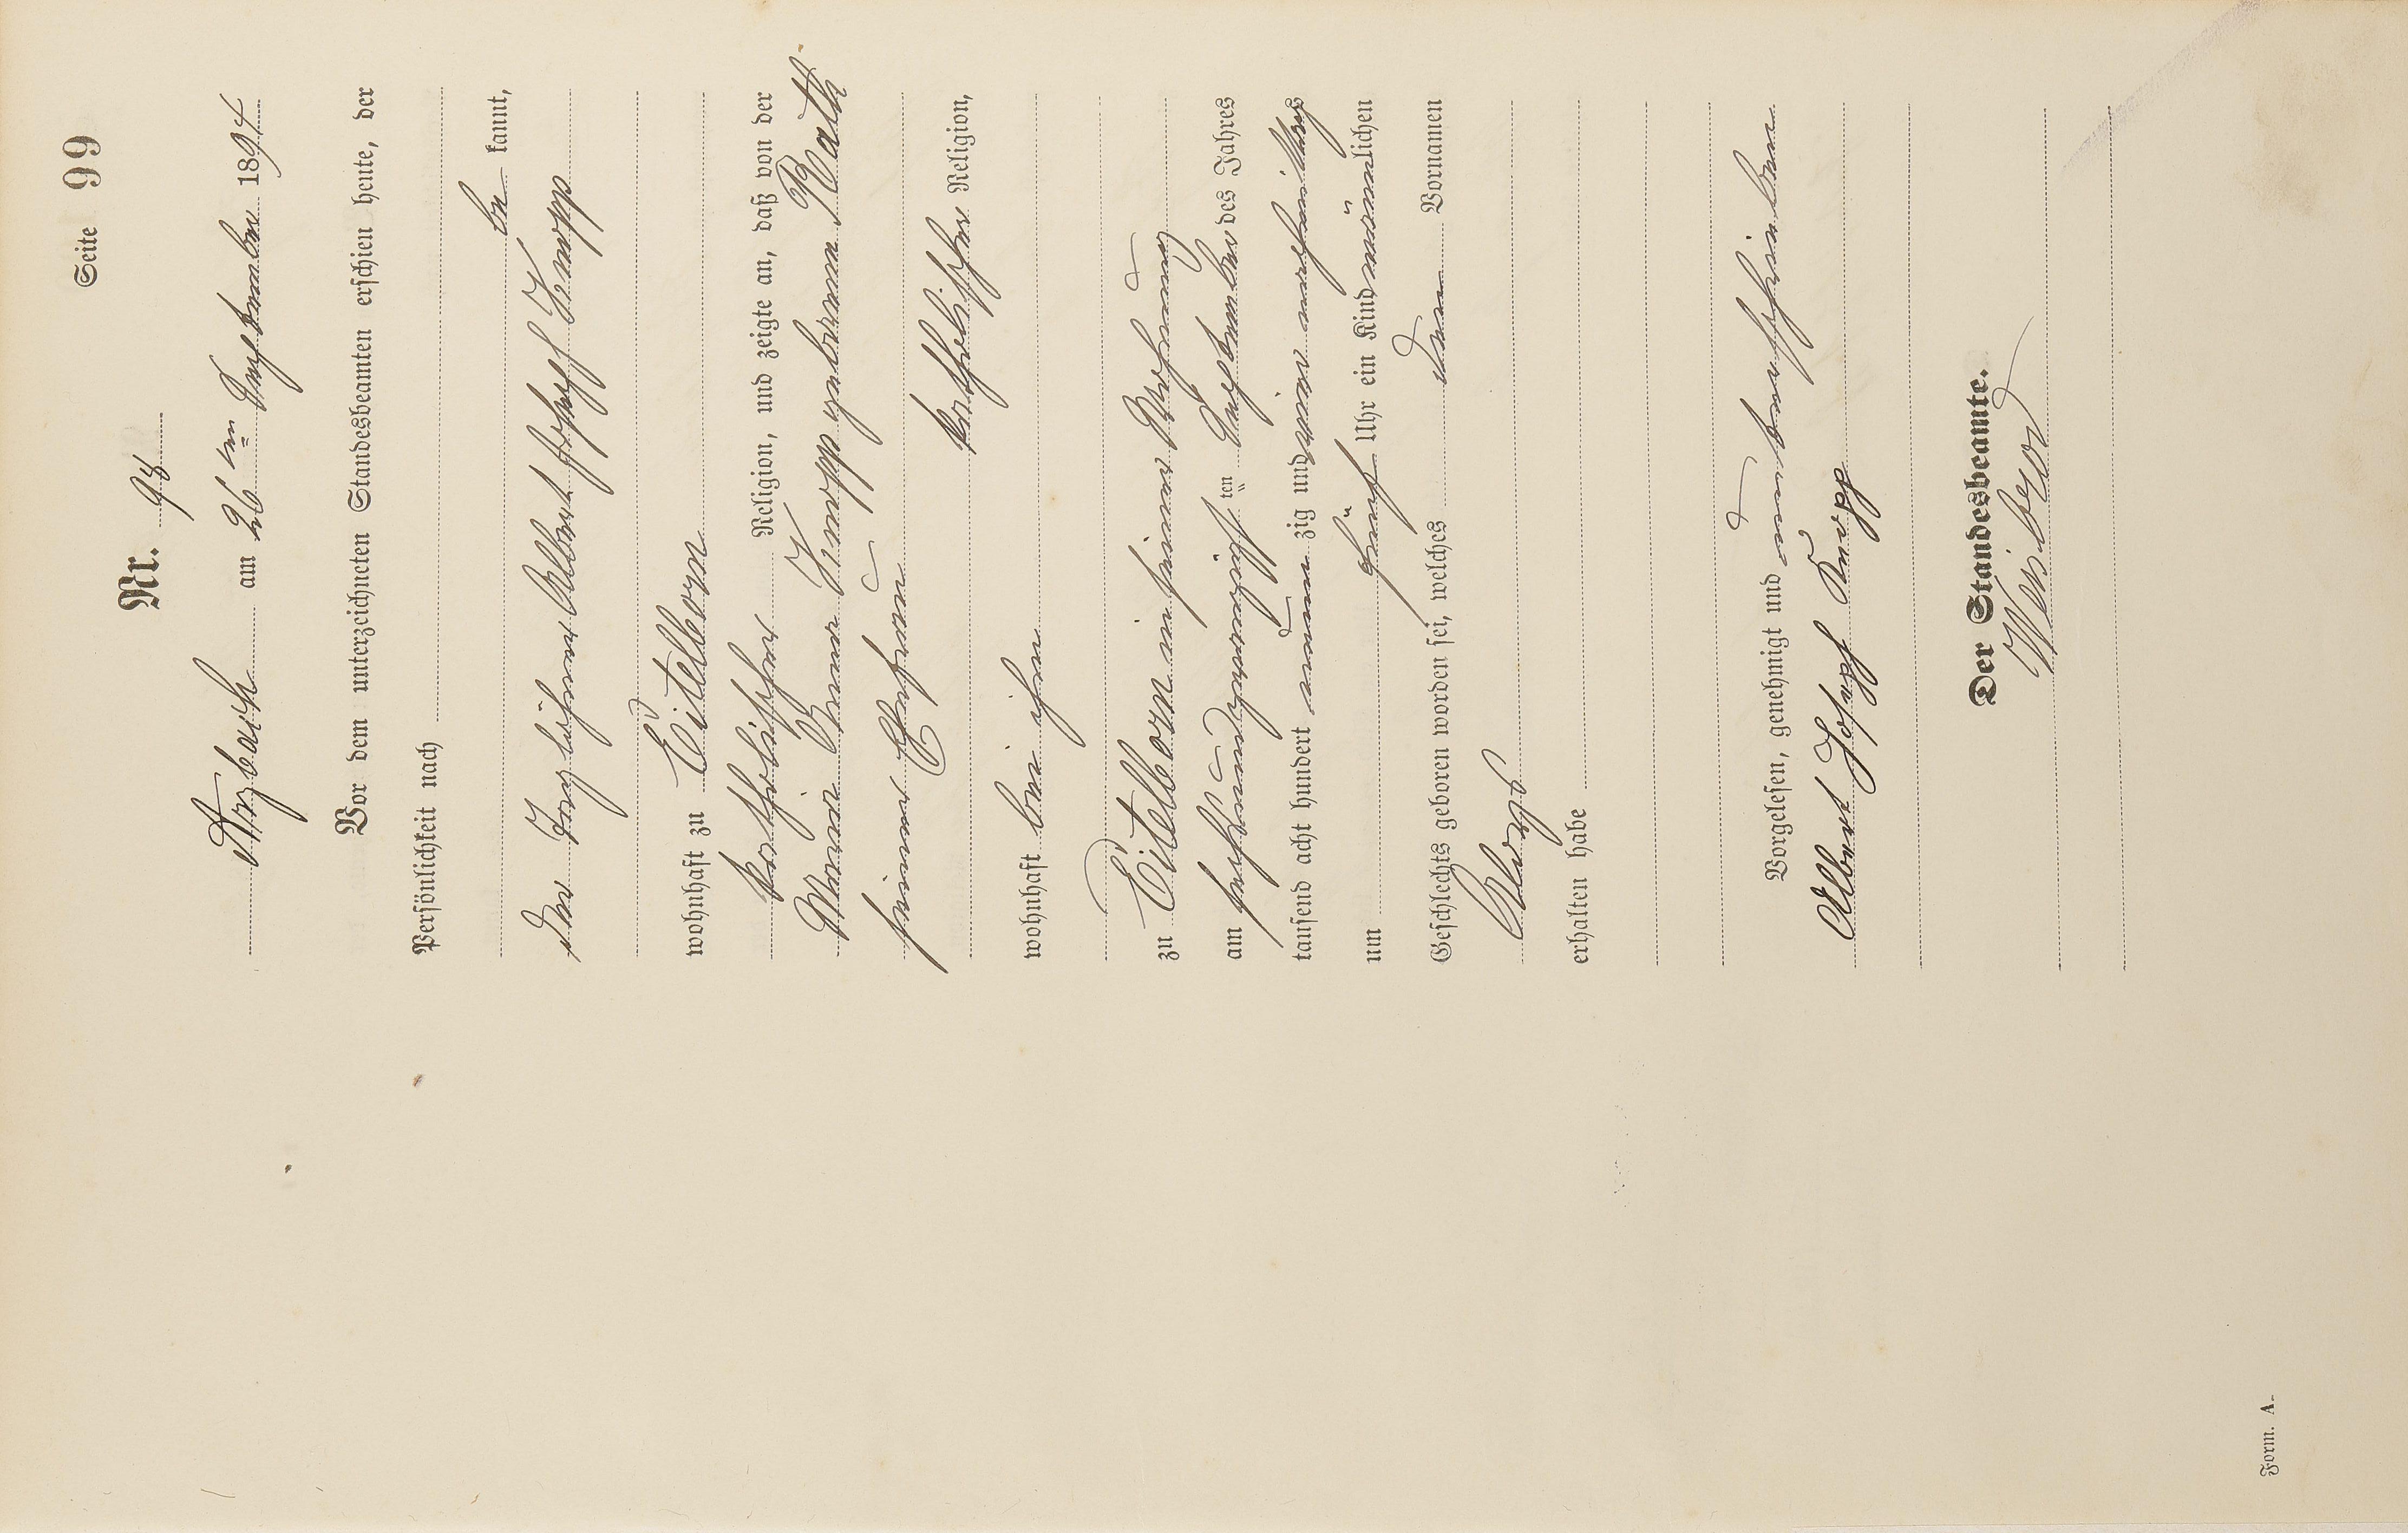 Seite 99
Nr. 98
Arzbach am 26ten September 1894
Vor dem unterzeichneten Standesbeamten erschien heute, der
Persönlichkeit nach
be kannt,
der Taglöhner Albert Joseph Knopp
wohnhaft zu Eitelborn
katholischer Religion, und zeigte an, daß von der
Maria Anna Knopp geborene Rath
seiner Ehefrau
katholischer Religion,
wohnhaft bei ihm
zu Eitelborn in seiner Wohnung
am sechsundzwanzigsten September des Jahres
tausend acht hundert neun zig und vier nachmittags
um fünf Uhr ein Kind männlichen
Geschlechts geboren worden sei, welches den Vornamen
Adolph
erhalten habe
Vorgelesen, genehmigt und unterschrieben
Albert Joseph Knopp
Der Standesbeamte.
Weisbrod
Form. A.